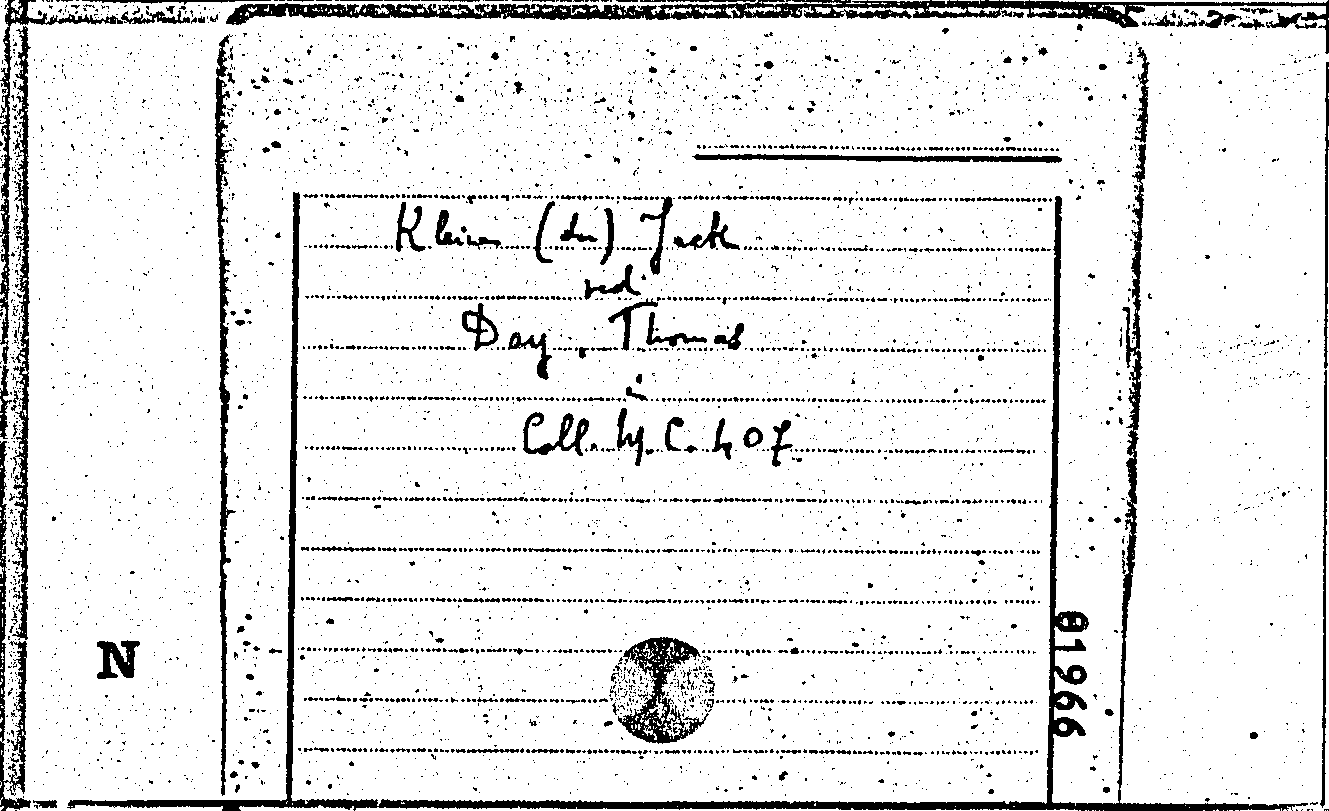 Kleine (der) Jack
vid.
Day, Thomas
in
Coll. Hy. C. 407
N
01966